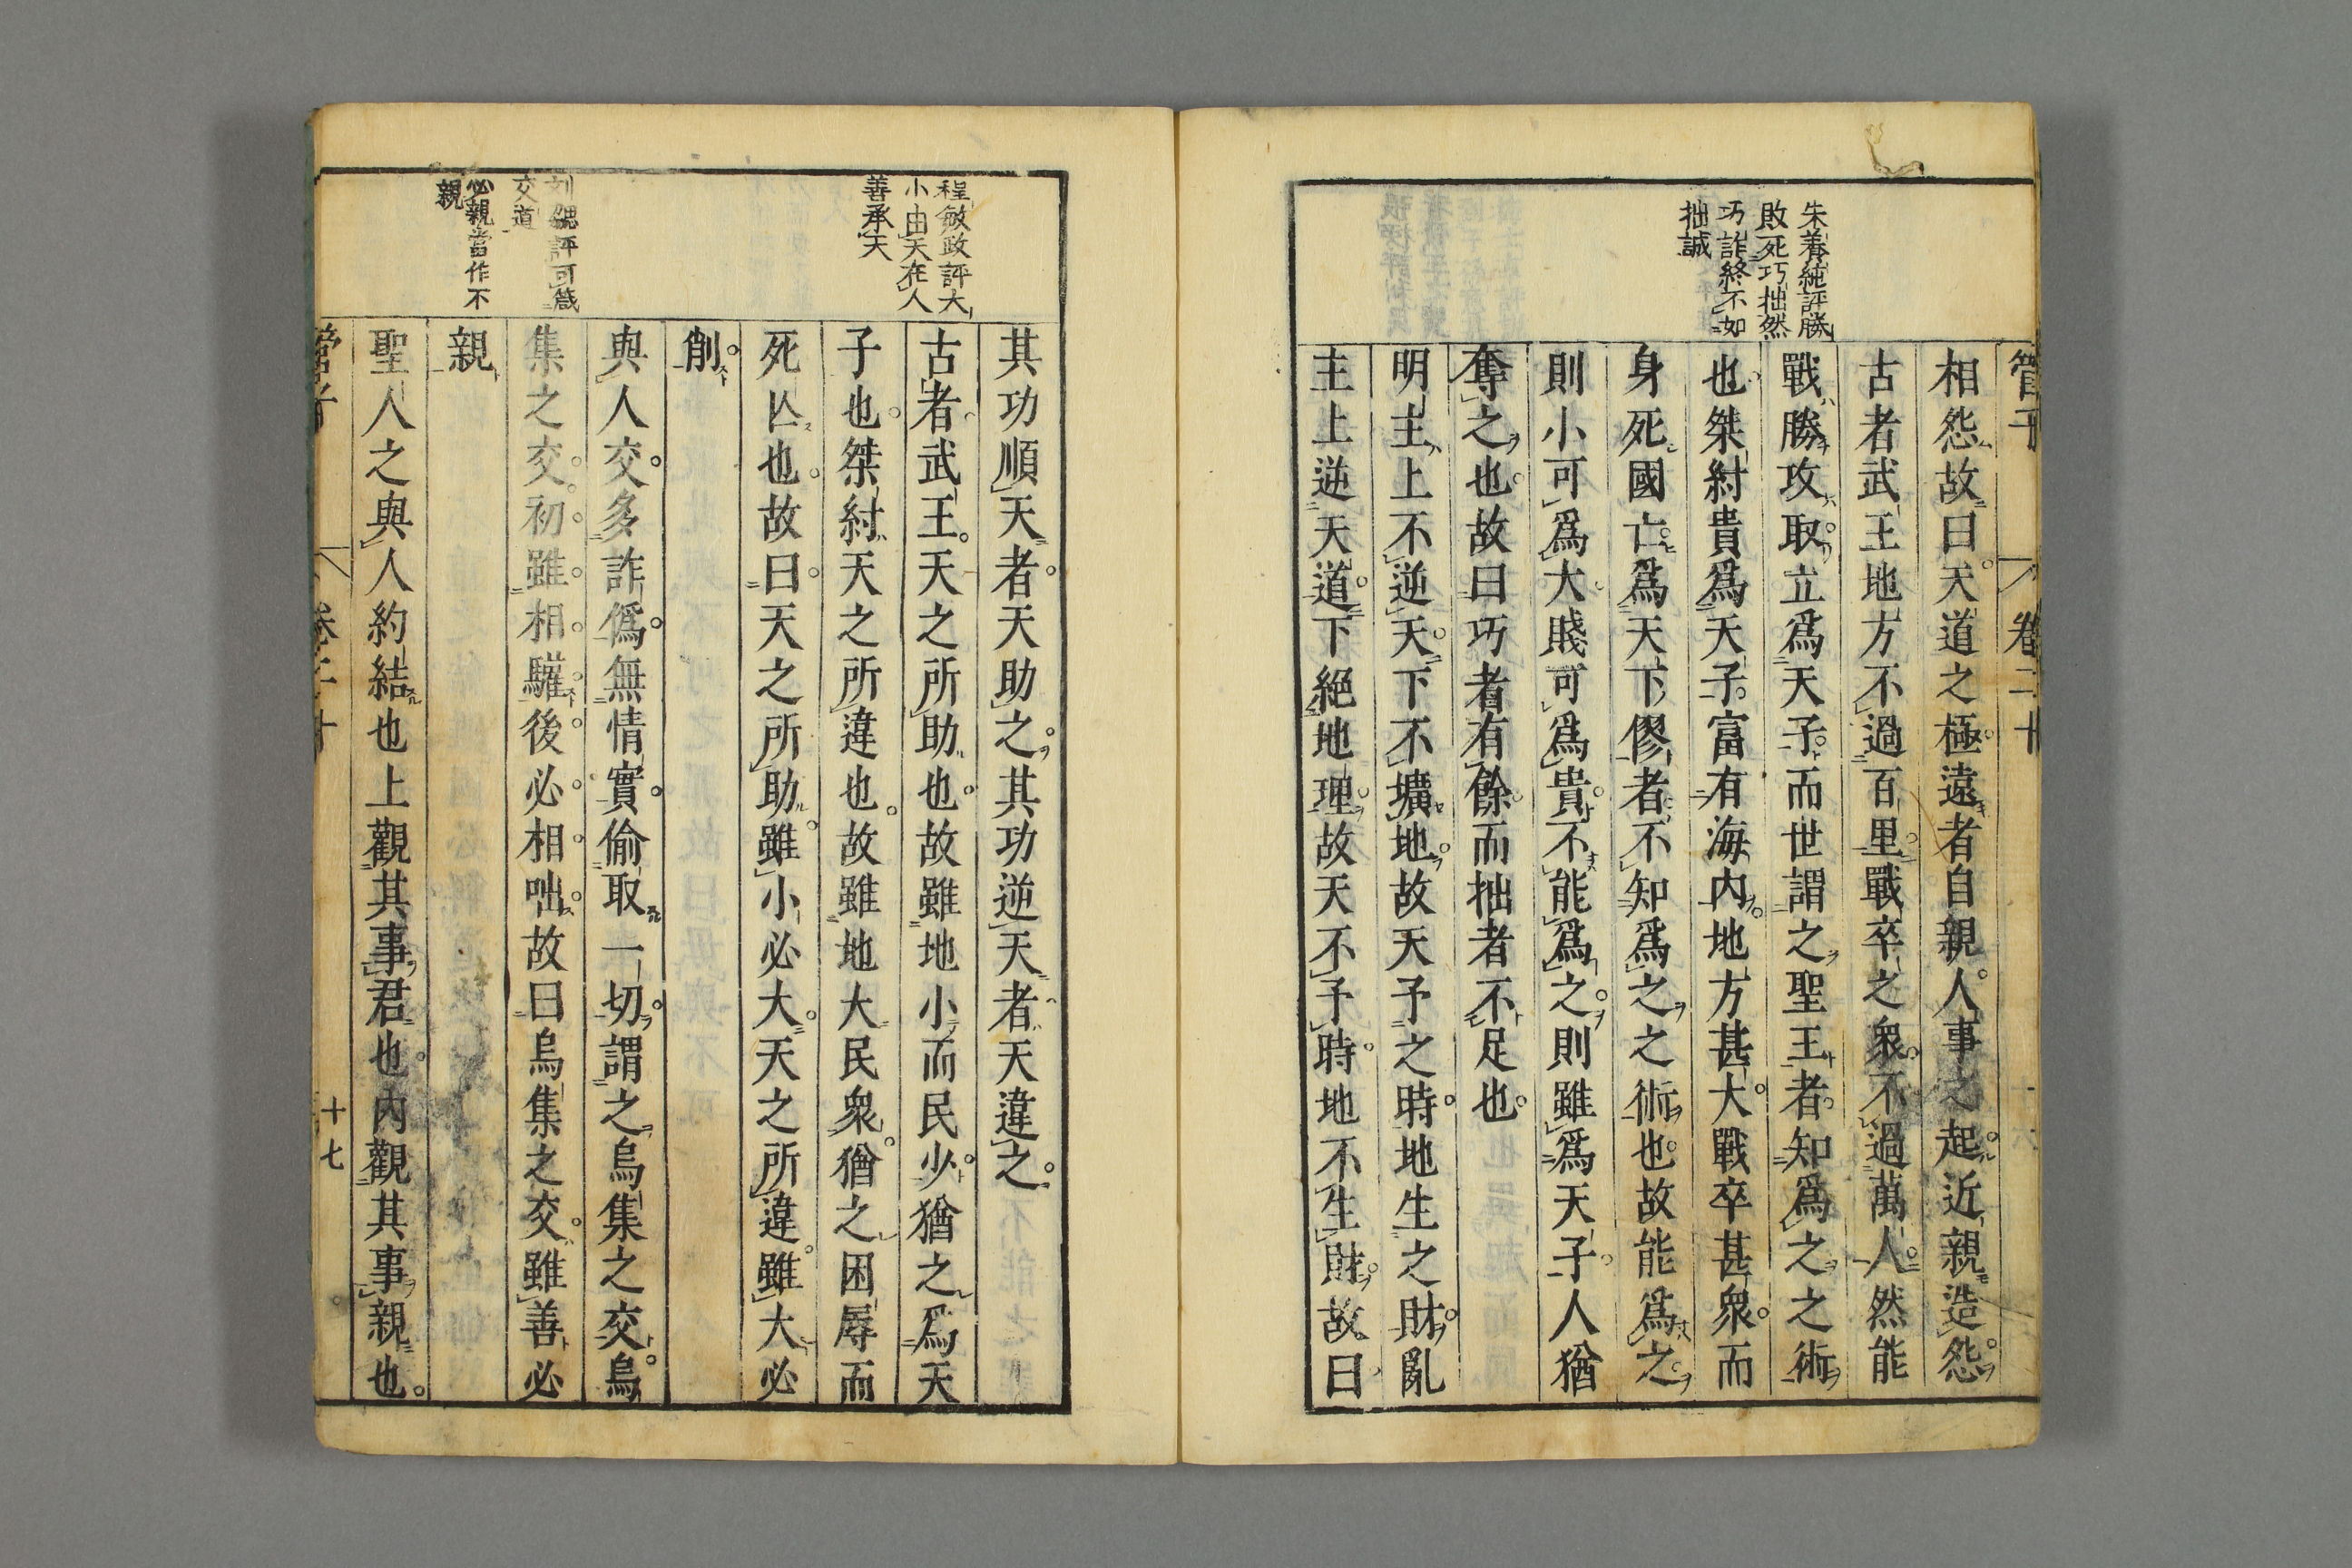 管子
卷二十
朱養純評勝
敗死巧拙然
巧詐終不如
拙誠
相怨故曰天道之極遠者自親人事之起近親造怨
古者武王地方不過百里戰卒之衆不過萬人然能
戰勝攻取立爲天子而世謂之聖王者知爲之之術
也桀紂貴爲天子富有海內地方甚大戰卒甚衆而
身死國亡爲天下僇者不知爲之之術也故能爲之
則小可爲大賤可爲貴不能爲之則雖爲天子人猶
奪之也故曰巧者有餘而拙者不足也
明主上不逆天下不壙地故天予之時地生之財亂
主上逆天道下絕地理故天不予時地不生財故曰
程敏政評大
小由天在人
善承天
其功順天者天助之其功逆天者天違之
古者武王天之所助也故雖地小而民少猶之爲天
子也桀紂天之所違也故雖地大民衆猶之困辱而
死亾也故曰天之所助雖小必大天之所違雖大必
削
劉勰評可箴
交道
與人交多詐僞無情實偷取一切謂之烏集之交烏
集之交初雖相驩後必相咄故曰烏集之交雖善必
親
必親當作不
親
聖人之與人約結也上觀其事君也內觀其事親也
管子
卷二十
十七